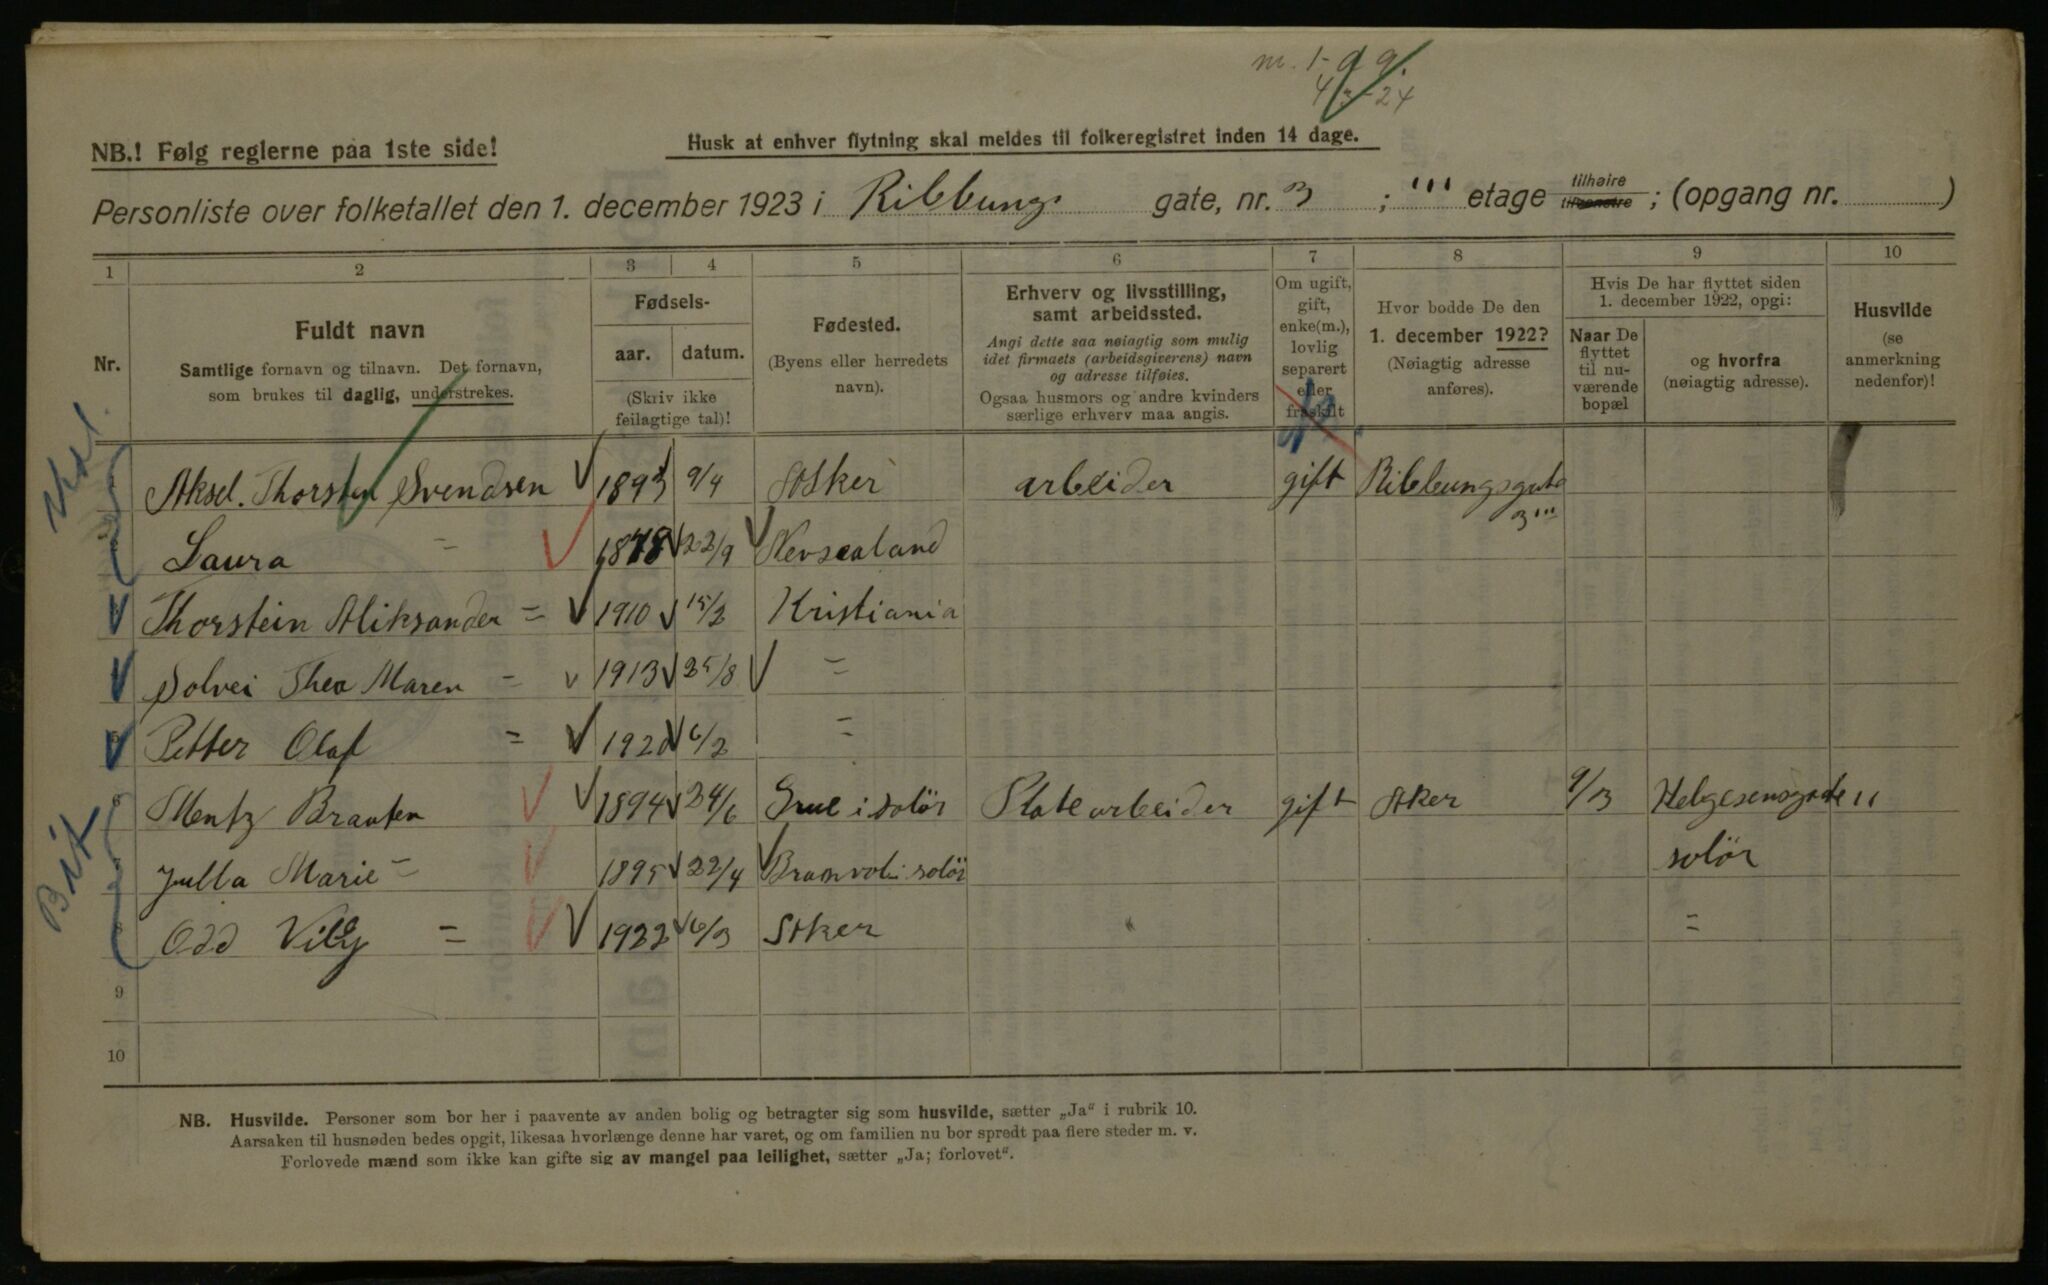 m. 1-9 9.
4/3-24
NB.! Følg reglerne paa 1ste side!
Husk at enhver flytning skal meldes til folkeregistret inden 14 dage.
Personliste over folketallet den 1. december 1923 i Ribbungs gate, nr. 3 ; III etage tilhøire tilvenstre ; (opgang nr. )
1 2 3 4 5 6 7 8 9 10
Nr.
Fuldt navn
Samtlige fornavn og tilnavn. Det fornavn,
som brukes til daglig, understrekes.
Fødsels-
aar. datum.
(Skriv ikke
feilagtige tal)!
Fødested.
(Byens eller herredets
navn).
Erhverv og livsstilling,
samt arbeidssted.
Angi dette saa nøiagtig som mulig
idet firmaets (arbeidsgiverens) navn
og adresse tilføies.
Ogsaa husmors og andre kvinders
særlige erhverv maa angis.
Om ugift,
gift,
enke(m.),
lovlig
separert
eller
fraskilt
Hvor bodde De den
1. december 1922?
(Nøiagtig adresse
anføres).
Hvis De har flyttet siden
1. december 1922, opgi:
Naar De
flyttet
til nu-
værende
bopæl
og hvorfra
(nøiagtig adresse).
Husvilde
(se
anmerkning
nedenfor)!
Aksel. Thorsten Svendsen 1893 9/4 Asker arbeider gift Ribbungsgata
3'''
Laura = 1878 22/9
Thorstein Aliksander = 1910 15/2 Kristiania
Solvei Thea Maren = 1913 25/8 =
5 Petter Olaf = 1920 6/2 =
Mentz Brauten 1894 24/6 Grue i solör gift Aker 9/3 Helgesensgade 11
Julla Marie = 1895 22/4 solör
Odd Villy = 1922 6/3 Aker =
9
10
NB. Husvilde. Personer som bor her i paavente av anden bolig og betragter sig som husvilde, sætter „Ja“ i rubrik 10.
Aarsaken til husnøden bedes opgit, likesaa hvorlænge denne har varet, og om familien nu bor spredt paa flere steder m. v.
Forlovede mænd som ikke kan gifte sig av mangel paa leilighet, sætter „Ja; forlovet“.